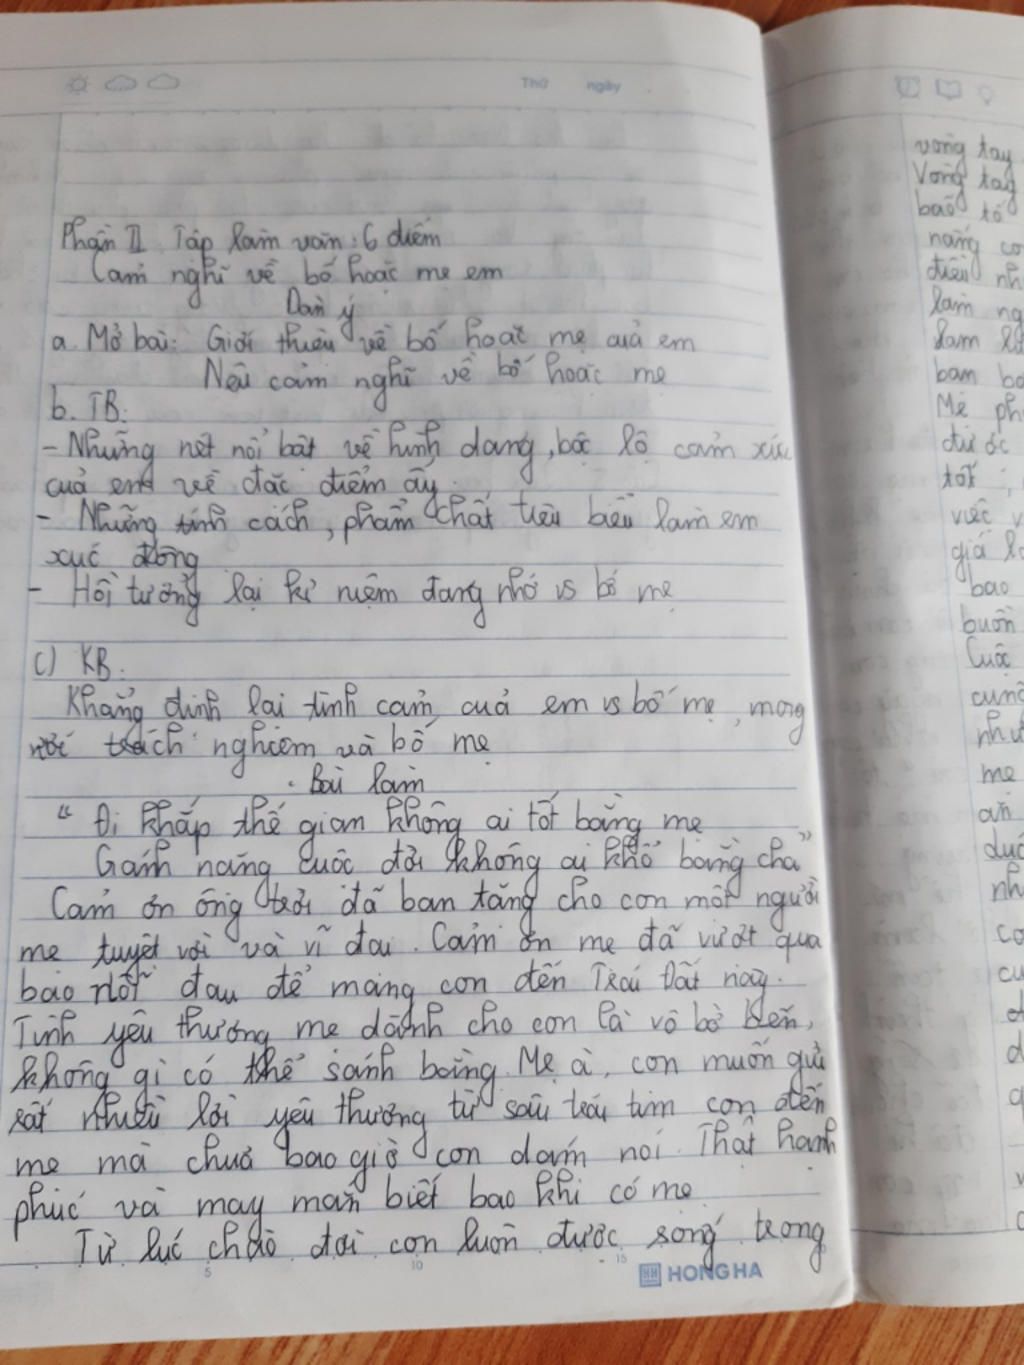 Thứ ngày
Phần II Tập làm văn: 6 điểm
Cảm nghĩ về bố hoặc mẹ em
Dàn ý
a. Mở bài: Giới thiệu về bố hoặc mẹ của em
Nêu cảm nghĩ về bố hoặc mẹ
b. TB:
- Những nét nổi bật về hình dáng, bộc lộ cảm xúc
của em về đặc điểm ấy.
- Những tính cách, phẩm chất tiêu biểu làm em
xúc động
- Hồi tưởng lại kỉ niệm đáng nhớ vs bố mẹ
c) KB:
Khẳng định lại tình cảm của em vs bố mẹ, mong
trách nghiệm và bố mẹ
Bài làm
"Đi khắp thế gian không ai tốt bằng mẹ
Gánh nặng cuộc đời không ai khổ bằng cha"
Cảm ơn ông trời đã ban tặng cho con một người
mẹ tuyệt vời và vĩ đại. Cảm ơn mẹ đã vượt qua
bao nỗi đau để mang con đến Trái Đất này.
Tình yêu thương mẹ dành cho con là vô bờ bến,
không gì có thể sánh bằng. Mẹ à, con muốn gửi
rất nhiều lời yêu thương từ sâu trái tim con đến
mẹ mà chưa bao giờ con dám nói. Thật hạnh
phúc và may mắn biết bao khi có mẹ
Từ lúc chào đời con luôn được sống trong
5 10 15
HONG HA
vòng tay
Vòng tay
bão tố
nắng co
điều nh
làm ng
làm lo
ban bo
Mẹ ph
được
tốt
việc v
giá lo
bao
buồn
Cuộc
cũng
như
mẹ
ăn
đướ
nh
co
cu
d